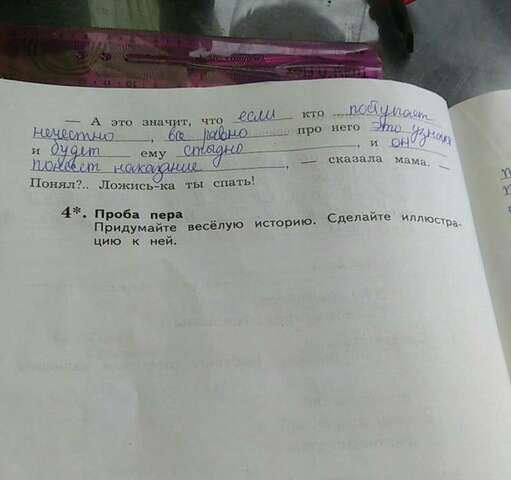 — А это значит, что если кто поступает
нечестно, всё равно про него это узнают
и будет ему стыдно, и он
понесёт наказание, — сказала мама. —
Понял?.. Ложись-ка ты спать!
4*. Проба пера
Придумайте весёлую историю. Сделайте иллюстра-
цию к ней.